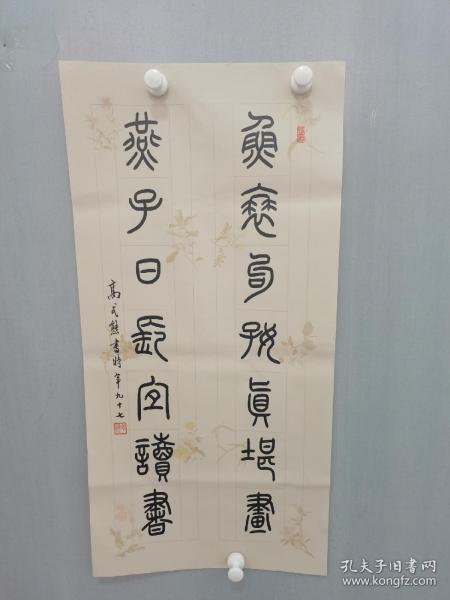 魚衰句好真堪畫
燕子日長宜讀書
高式熊書時年九十七
孔夫子旧书网
www.kongfz.com